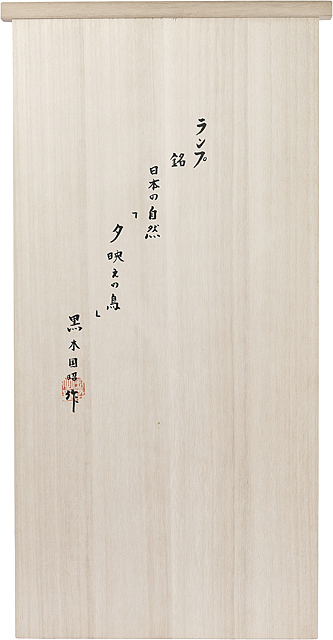 ランプ
銘
日本の自然
「夕映えの鳥」
黒木国昭作